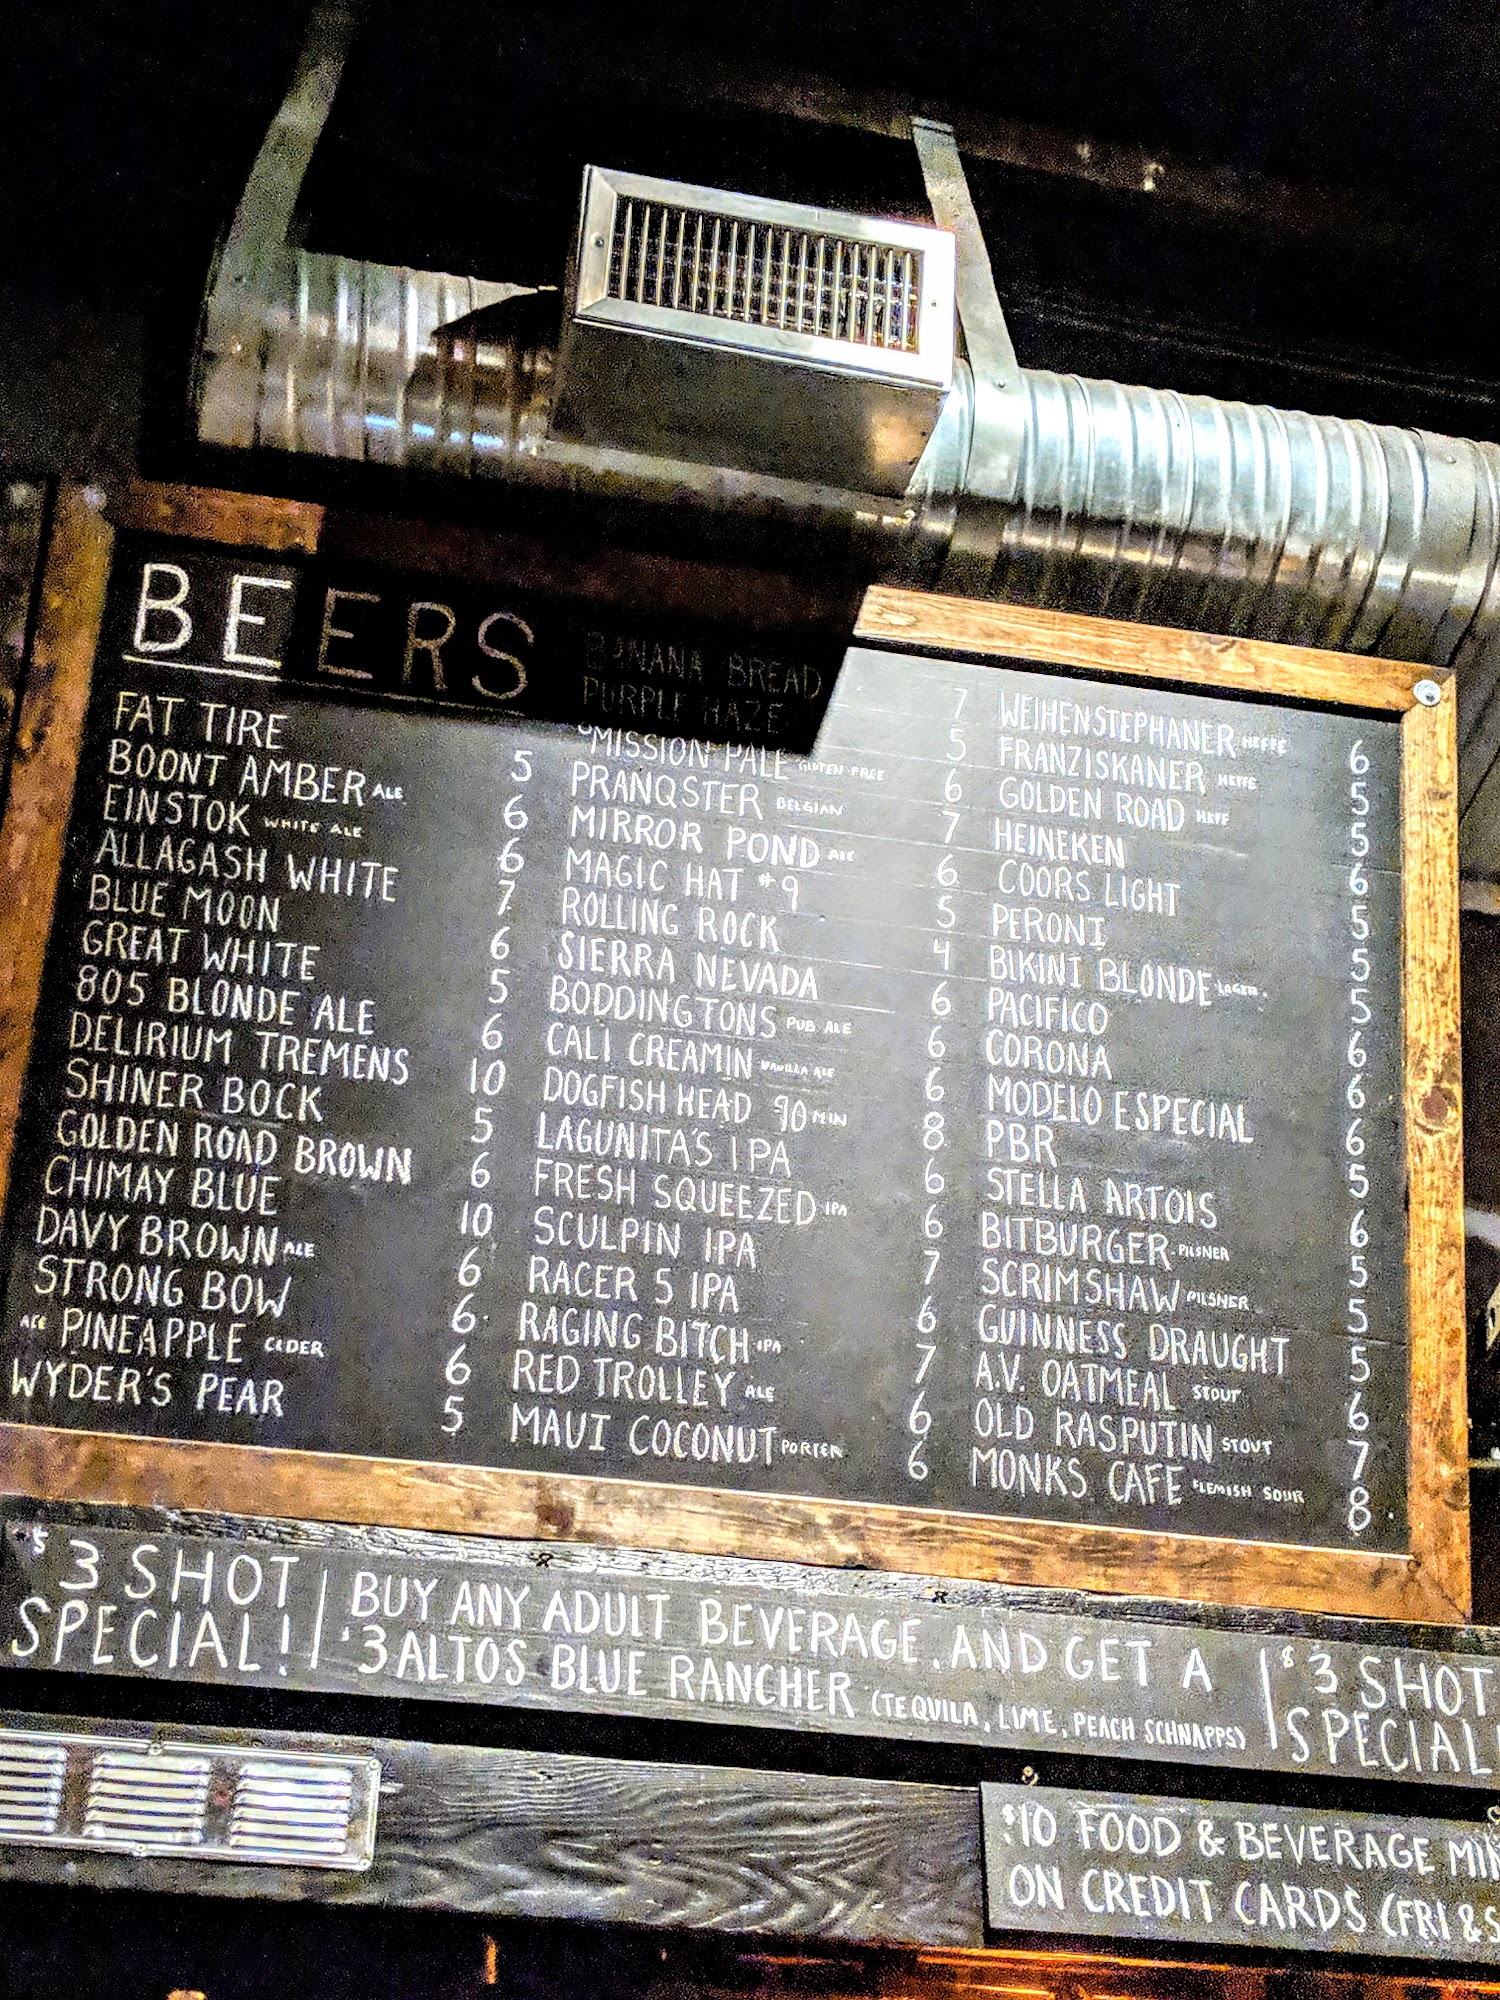 BEERS
FAT TIRE 5
BOONT AMBER ALE 6
EINSTOK WHITE ALE 6
ALLAGASH WHITE 7
BLUE MOON 6
GREAT WHITE 5
805 BLONDE ALE 6
DELIRIUM TREMENS 10
SHINER BOCK 5
GOLDEN ROAD BROWN 6
CHIMAY BLUE 10
DAVY BROWN ALE 6
STRONG BOW 6
ACE PINEAPPLE CIDER 6
WYDER'S PEAR 5
BANANA BREAD 7
PURPLE HAZE 5
OMISSION PALE GLUTEN FREE 6
PRANQSTER BELGIAN 7
MIRROR POND ALE 6
MAGIC HAT #9 5
ROLLING ROCK 4
SIERRA NEVADA 6
BODDINGTONS PUB ALE 6
CALI CREAMIN VANILLA ALE 6
DOGFISH HEAD 90 MIN 8
LAGUNITA'S IPA 6
FRESH SQUEEZED IPA 6
SCULPIN IPA 7
RACER 5 IPA 6
RAGING BITCH IPA 7
RED TROLLEY ALE 6
MAUI COCONUT PORTER 6
WEIHENSTEPHANER HEFFE 6
FRANZISKANER HEFFE 5
GOLDEN ROAD HEFF 5
HEINEKEN 6
COORS LIGHT 5
PERONI 5
BIKINI BLONDE LAGER. 5
PACIFICO 6
CORONA 6
MODELO ESPECIAL 6
PBR 5
STELLA ARTOIS 6
BITBURGER PILSNER 5
SCRIMSHAW PILSNER 5
GUINNESS DRAUGHT 5
A.V. OATMEAL STOUT 6
OLD RASPUTIN STOUT 7
MONKS CAFE FLEMISH SOUR 8
$3 SHOT
SPECIAL!
BUY ANY ADULT BEVERAGE. AND GET A
$3 ALTOS BLUE RANCHER (TEQUILA, LIME, PEACH SCHNAPPS)
$3 SHOT
SPECIAL
$10 FOOD & BEVERAGE MIN
ON CREDIT CARDS (FRI & S